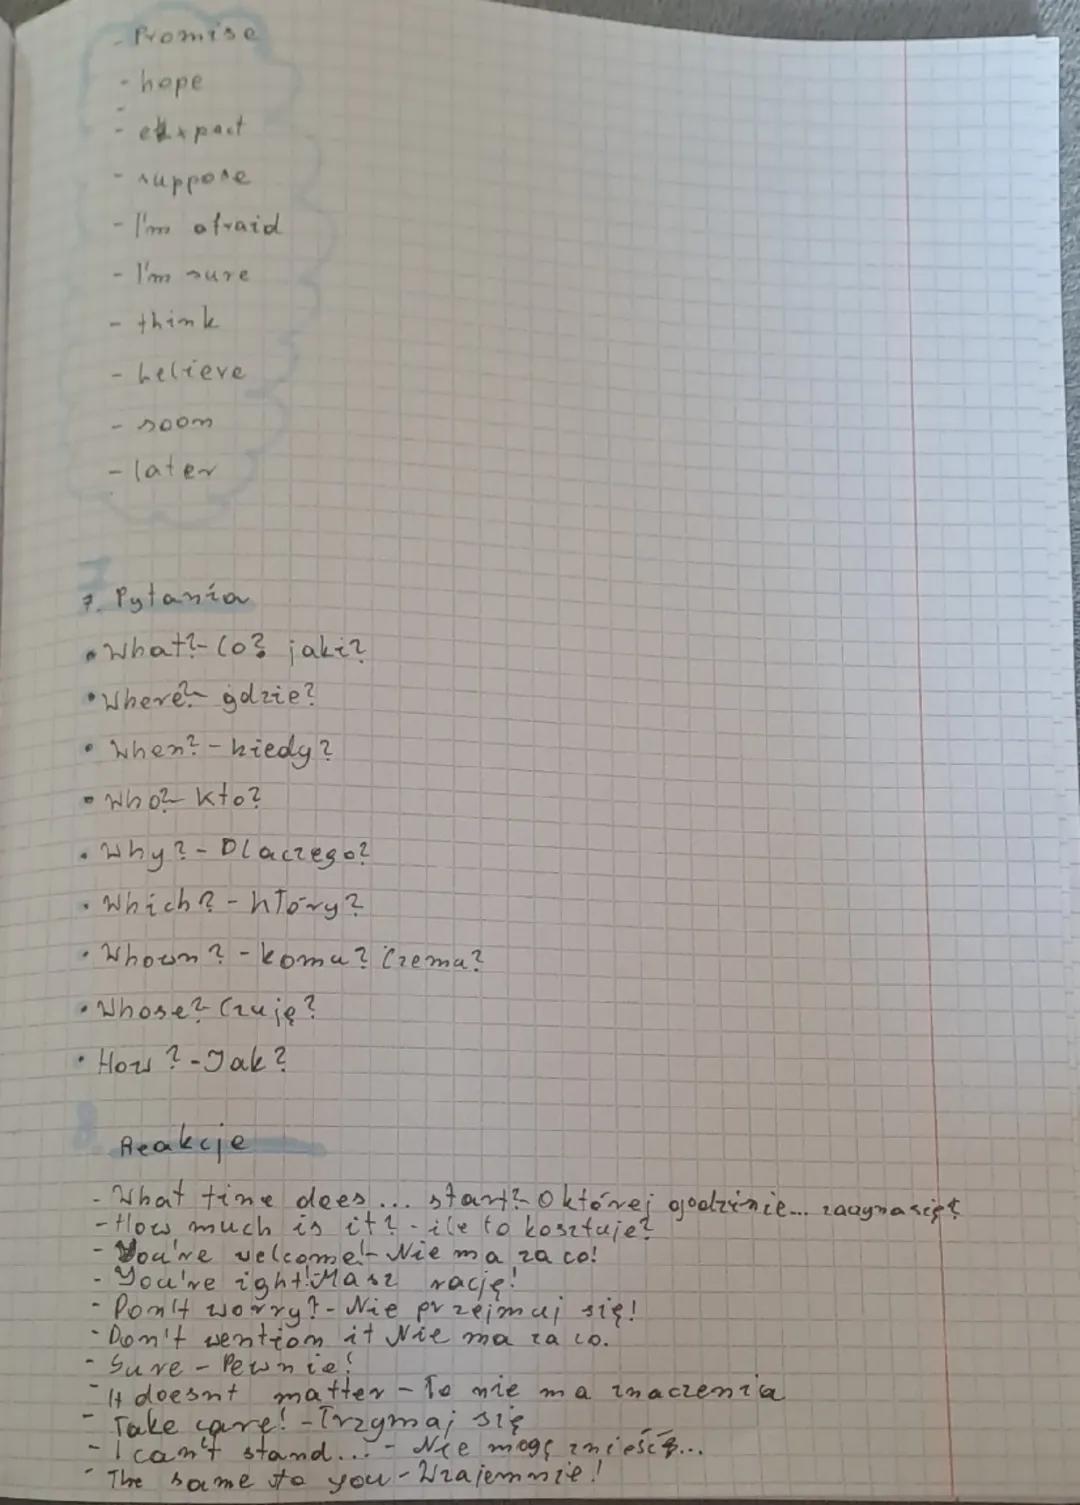 - Promise
- hope
- expact
- suppose
- I'm afraid
- I'm sure
- think
- believe
- soon
- later
7. Pytania
• What?- Co? jaki?
• Where?- gdzie?
• When? - kiedy?
• Who?- Kto?
• Why? - Dlaczego?
• Which? - który?
• Whown? - komu? Czemu?
• Whose? Czuję?
• How? - Jak?
8. Reakcje
- What time dees... start?- O której godzinie... zaczyna się?
- How much is it? - ile to kosztuje?
- You're welcome!- Nie ma za co!
- You're ight! Masz rację!
- Don't worry?- Nie przejmuj się!
- Don't wention it Nie ma za co.
- Sure - Pewnie!
- It doesnt matter - To nie ma znaczenia
- Take care! - Trzymaj się
- I can't stand... - Nie mogę znieść...
- The same to you - Wzajemnie!